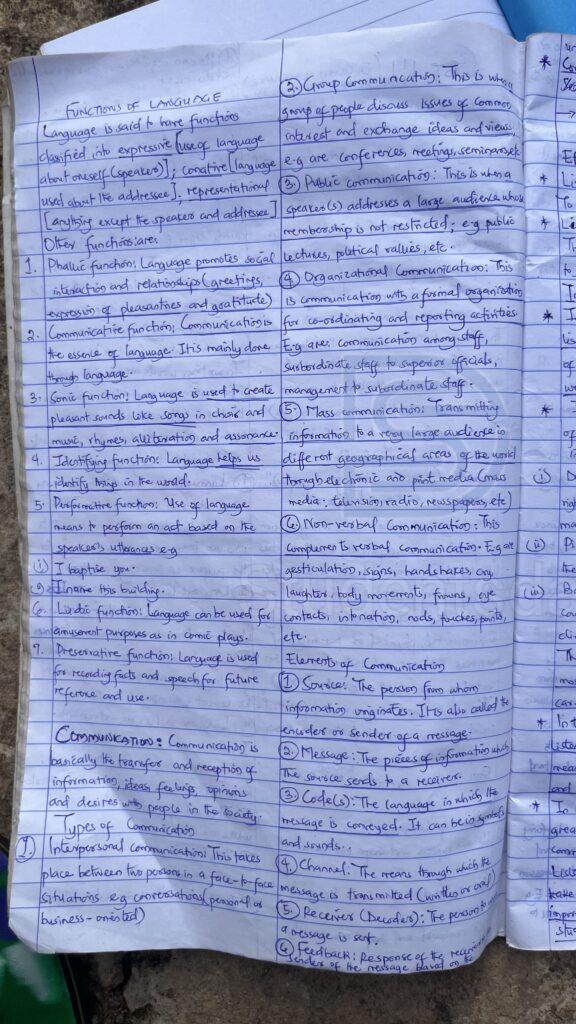 FUNCTIONS OF LANGUAGE
Language is said to have functions
classified into expressive [use of language
about oneself (speaker)]; conative [language
used about the addressee], representational
[anything except the speaker and addressee]
Other functions are:
1. Phatic function: Language promotes social
interaction and relationships (greetings,
expression of pleasantries and gratitude)
2. Communicative function: Communication is
the essence of language. It is mainly done
through language.
3. Sonic function: Language is used to create
pleasant sounds like songs in choir and
music, rhymes, alliteration and assonance.
4. Identifying function: Language helps us
identify things in the world.
5. Performative function: Use of language
means to perform an act based on the
speaker's utterances e.g
(i) I baptise you.
I name this building.
6. Ludic function: Language can be used for
amusement purposes as in comic plays.
7. Preservative function: Language is used
for recording facts and speech for future
reference and use.
COMMUNICATION: Communication is
basically the transfer and reception of
information, ideas, feelings, opinions
and desires with people in the society.
Types of Communication
1. Interpersonal communication: This takes
place between two persons in a face-to-face
situations e.g conversations (personal or
business-oriented)
2. Group Communication: This is when a
group of people discuss issues of common
interest and exchange ideas and views
e.g are conferences, meetings, seminars, etc
3. Public communication: This is when a
speaker(s) addresses a large audience whose
membership is not restricted; e.g public
lectures, political rallies, etc.
4. Organizational Communication: This
is communication with a formal organization
for co-ordinating and reporting activities.
E.g are: communication among staff,
subordinate staff to superior officials,
management to subordinate staff.
5. Mass communication: Transmitting
information to a very large audience in
different geographical areas of the world
through electronic and print media (mass
media: television, radio, newspapers, etc)
6. Non-verbal Communication: This
complements verbal communication. E.g are
gesticulation, signs, handshakes, cry,
laughter, body movements, frowns, eye
contacts, intonation, nods, touches, points,
etc.
Elements of Communication
1. Source: The person from whom
information originates. It is also called the
encoder or sender of a message.
2. Message: The pieces of information which
the source sends to a receiver.
3. Code(s): The language in which the
message is conveyed. It can be in symbols
and sounds.
4. Channel: The means through which the
message is transmitted (written or oral)
5. Receiver (Decoder): The person to
a message is sent.
6. Feedback: Response of the receiver
sender of the message based on the